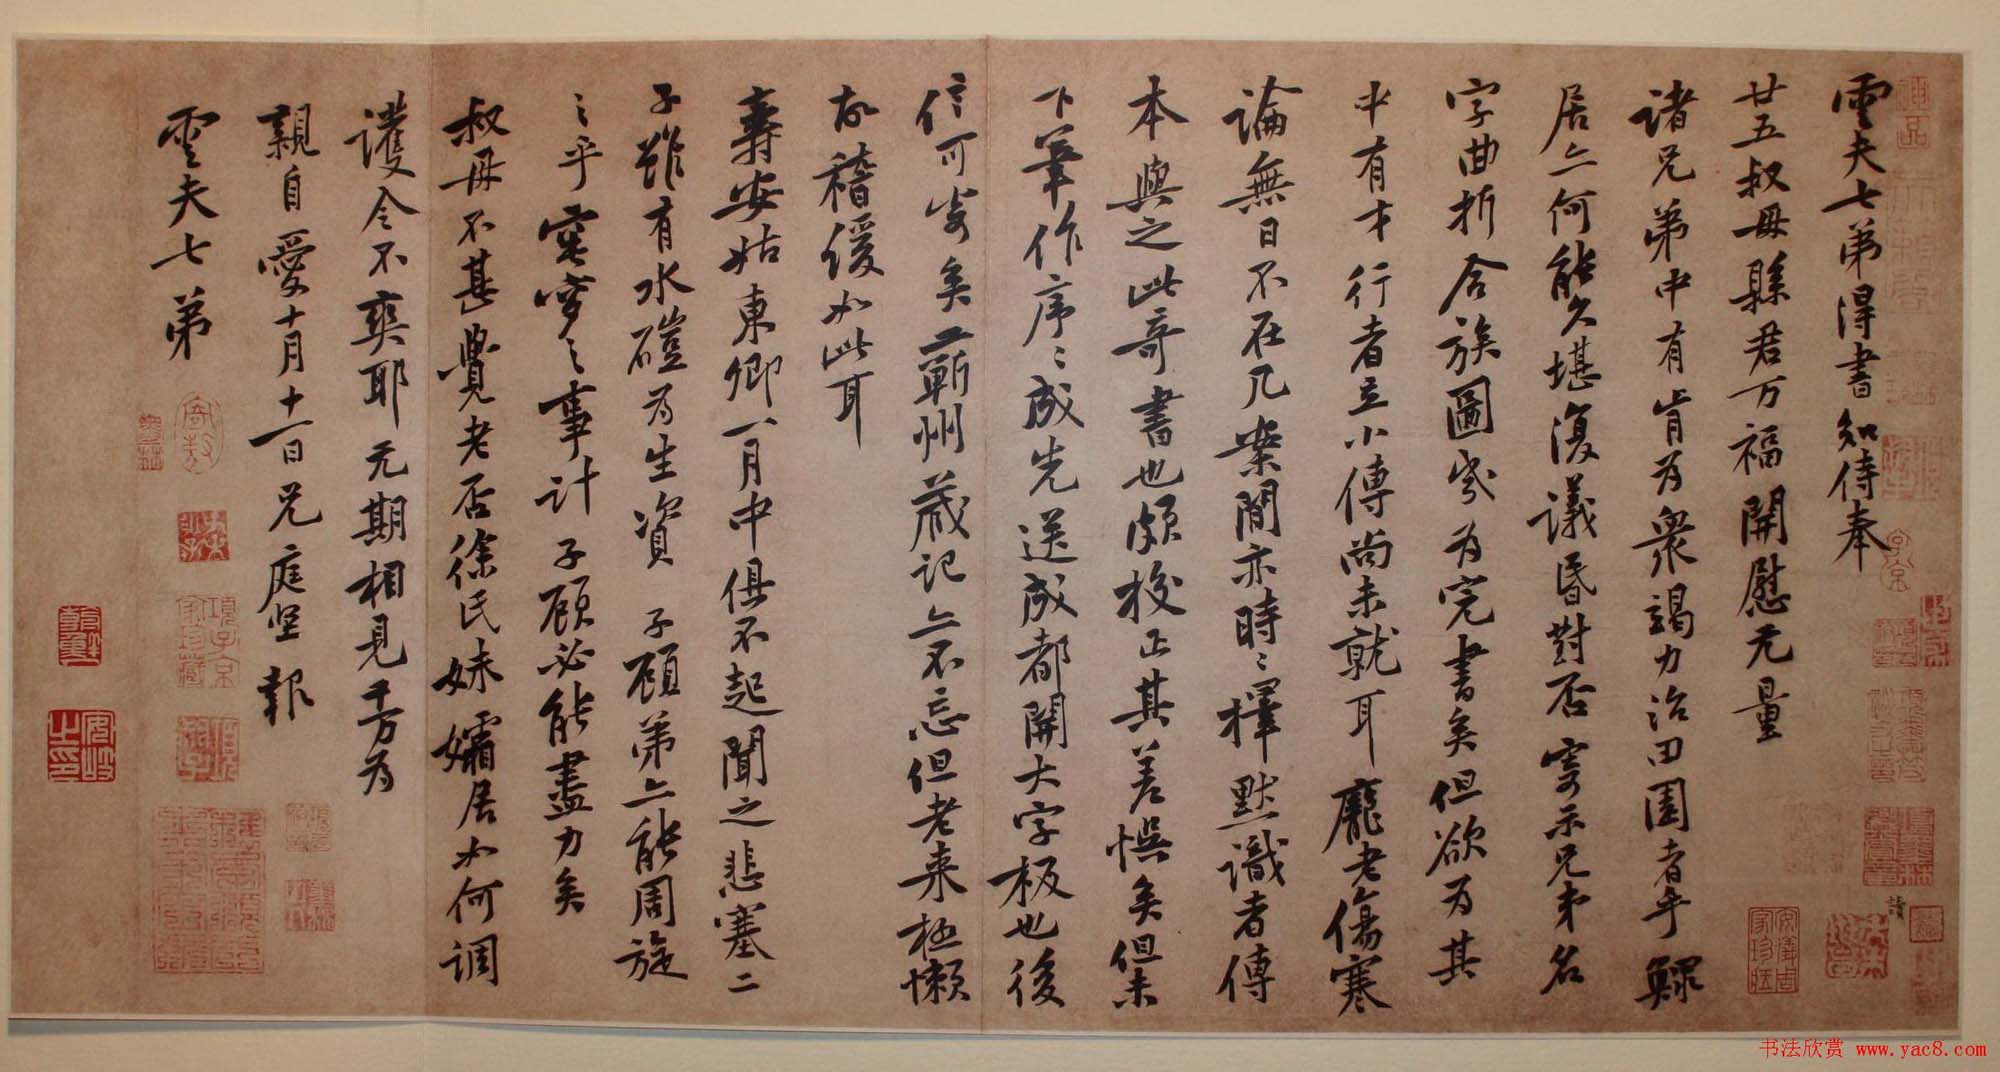 雲夫七弟得書知侍奉
廿五叔母縣君万福開慰无量
诸兄弟中有肯为衆竭力治田園者乎鰥
居亦何能久堪復議昏對否寄示兄弟名
字曲折合族圖岁为完書矣但欲为其
中有才行者立小傳尚未就耳龐老傷寒
論無日不在几案間亦時〻擇默識者傳
本與之此奇書也頗校正其差悮矣但未
下筆作序〻成先送成都開大字板也後
信可寄矣蘄州藏记亦不忘但老来極懶
故稽缓如此耳
壽安姑東卿一月中俱不起聞之悲塞二
子雖有水磑为生資子顧弟亦能周旋
之乎窀穸之事計子顧必能盡力矣
叔母不甚覺老否徐氏妹孀居如何调
護令不爽耶无期相見千万为
親自愛十月十一日兄庭坚報
雲夫七弟
書法欣赏 www.yac8.com